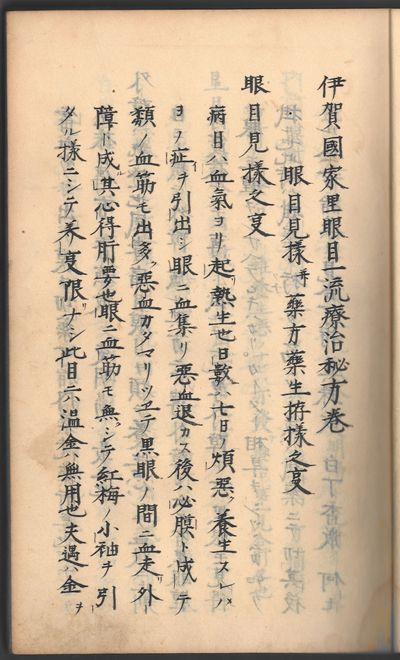 伊賀國家里眼目一流療治秘方巻
眼目見様并藥方藥生拵様之叓
眼目見様之叓
病目ハ血氣ヨリ起リ熱生也日數六七日煩悪ク養生スレハ
ヨノ症ヲ引出シ眼ニ血集リ悪血退カス後ハ必膜ト成テ
類ノ血筋モ出多ク悪血カタマリツヱテ黒眼ノ間ニ血走リ外
障ト成ル其心得肝要也眼ニ血筋モ無シテ紅梅ノ小袖ヲ引
タル様ニシテ养叓限リナシ此目ニ六温金ハ無用也夫遇ハ金ヲ